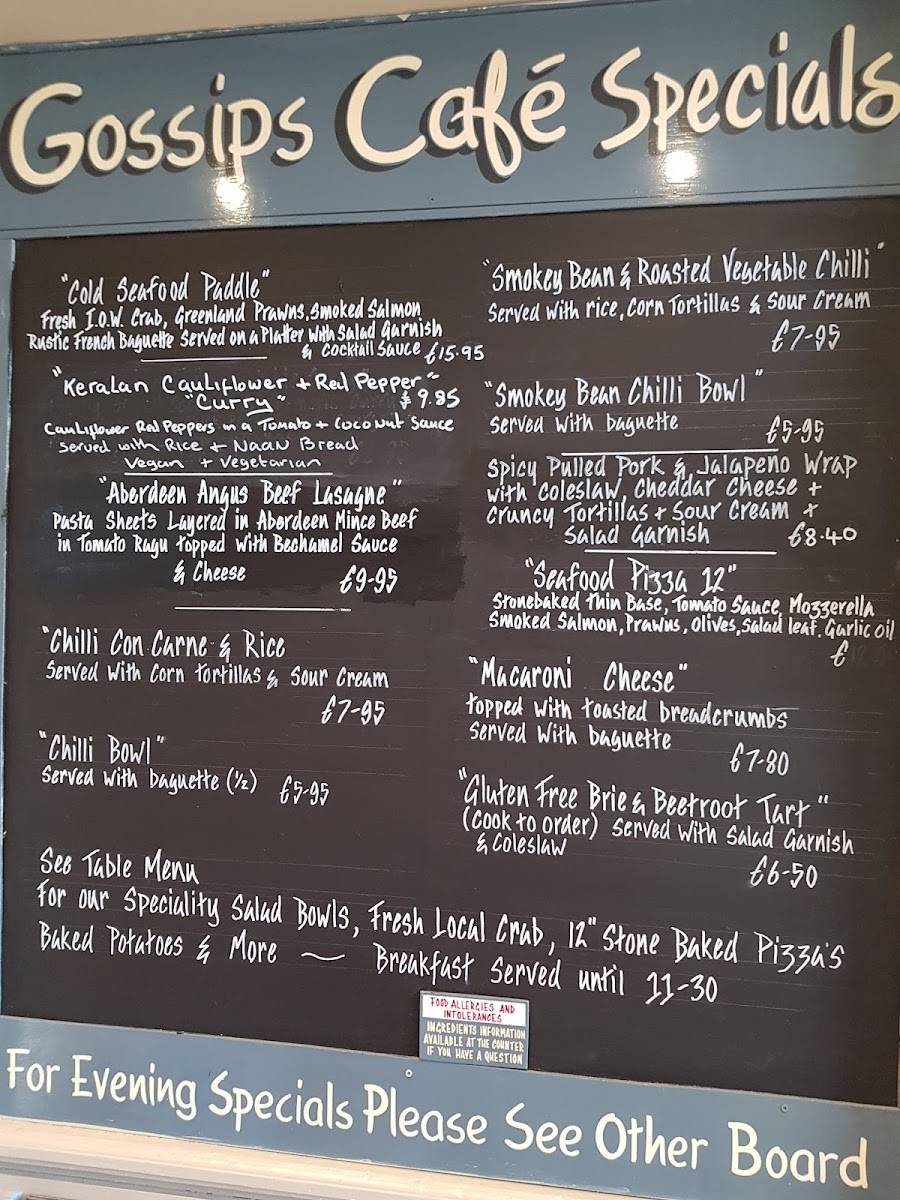 Gossips Café Specials
"Cold Seafood Paddle"
Fresh I.O.W. Crab, Greenland Prawns, Smoked Salmon
Rustic French Baguette Served on a Platter with Salad Garnish
& Cocktail Sauce £15.95
"Keralan Cauliflower + Red Pepper"
"Curry" £9.85
Cauliflower Red Peppers in a Tomato + Coconut Sauce
Served with Rice + Naan Bread
Vegan + Vegetarian
"Aberdeen Angus Beef Lasagne"
Pasta Sheets Layered in Aberdeen Mince Beef
in Tomato Ragu topped with Bechamel Sauce
& Cheese £9-95
"Chilli Con Carne & Rice
Served with Corn Tortillas & Sour Cream
£7-95
"Chilli Bowl"
Served with baguette (½) £5-95
"Smokey Bean & Roasted Vegetable Chilli"
Served with rice, Corn Tortillas & Sour Cream
£7-95
"Smokey Bean Chilli Bowl"
Served with baguette
£5-95
Spicy Pulled Pork & Jalapeno Wrap
with Coleslaw, Cheddar Cheese +
Cruncy Tortillas + Sour Cream +
Salad Garnish £8.40
"Seafood Pizza 12"
Stonebaked Thin Base, Tomato Sauce, Mozzerella
Smoked Salmon, Prawns, Olives, Salad leaf, Garlic oil
£
"Macaroni Cheese"
topped with toasted breadcrumbs
Served with baguette
£7-80
"Gluten Free Brie & Beetroot Tart"
(Cook to order) Served with Salad Garnish
& Coleslaw
£6-50
See Table Menu
For our Speciality Salad Bowls, Fresh Local Crab, 12" Stone Baked Pizza's
Baked Potatoes & More ~ Breakfast Served until 11-30
FOOD ALLERGIES AND
INTOLERANCES
INGREDIENTS INFORMATION
AVAILABLE AT THE COUNTER
IF YOU HAVE A QUESTION
For Evening Specials Please See Other Board